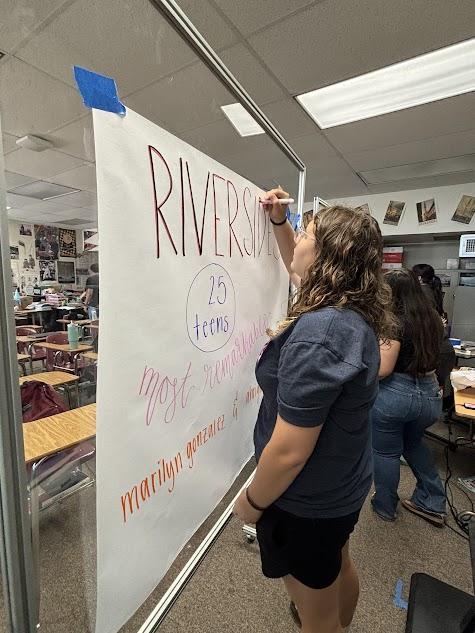 RIVERSIDE
25
teens
most remarkable
marilyn gonzalez &